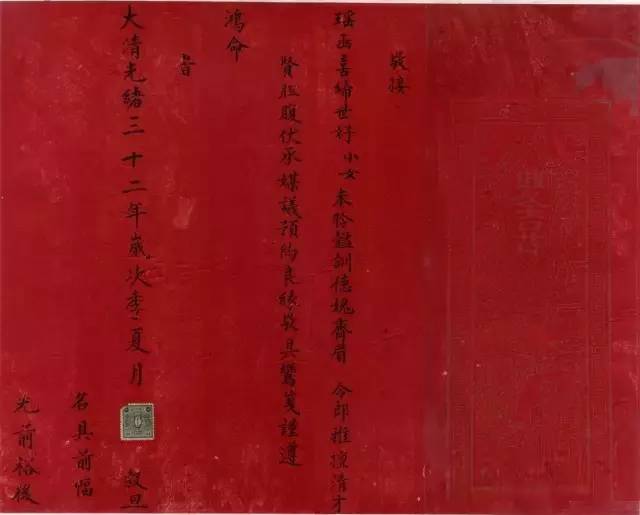 敬接
瑤函喜締世好小女未聆訓德愧齊眉 令郎雅擅清才
賢腹伏承媒議預約良緣敬具鸞箋謹遵
鴻命
旹
大清光緒三十二年歲次季夏月 穀旦
名具前幅
光前裕後